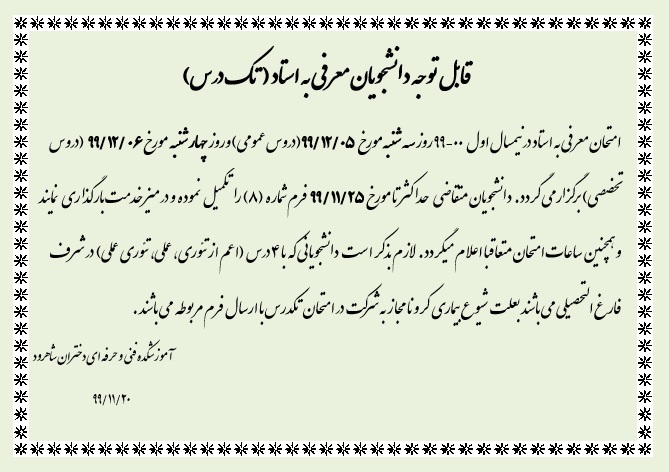 قابل توجه دانشجویان معرفی به استاد (تک درس)
امتحان معرفی به استاد در نیمسال اول ۰۰-۹۹ روز سه شنبه مورخ ۹۹/۱۲/۰۵ (دروس عمومی) و روز چهارشنبه مورخ ۹۹/۱۲/۰۶ (دروس
تخصصی) برگزار می گردد. دانشجویان متقاضی حداکثر تا مورخ ۹۹/۱۱/۲۵ فرم شماره (۸) را تکمیل نموده و در میز خدمت بارگذاری نمایند
و همچنین ساعات امتحان متعاقبا اعلام میگردد. لازم بذکر است دانشجویانی که با ۴ درس (اعم از تئوری، عملی، تئوری عملی) در شرف
فارغ التحصیلی می باشند بعلت شیوع بیماری کرونا مجاز به شرکت در امتحان تکدرس با ارسال فرم مربوطه می باشند.
آموزشکده فنی و حرفه ای دختران شاهرود
۹۹/۱۱/۲۰